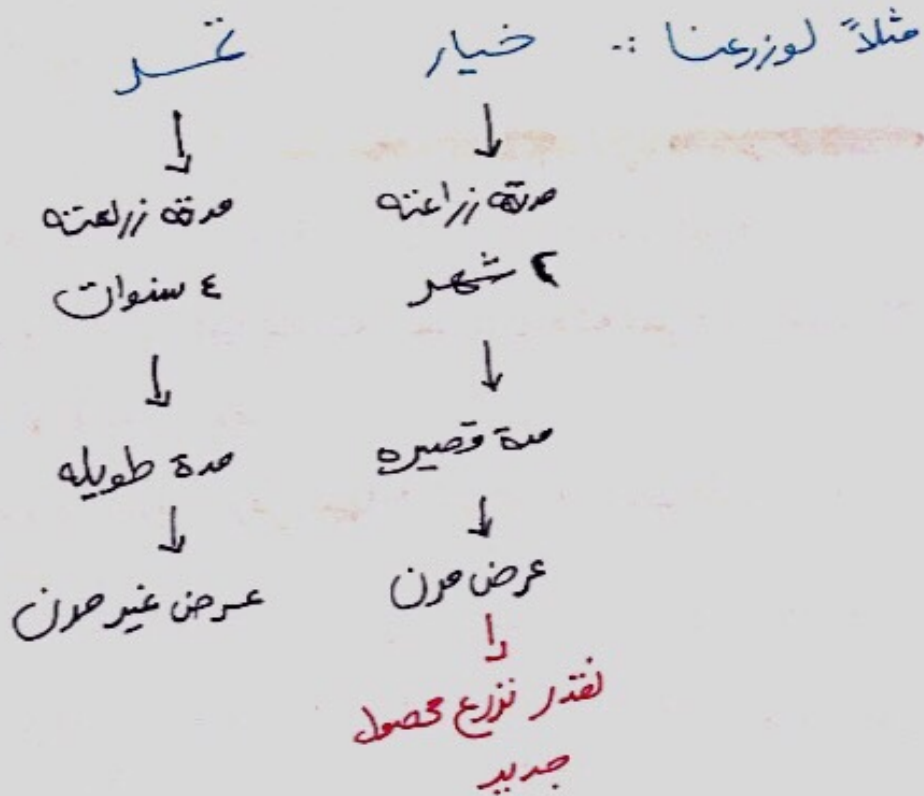 مثلاً لو زرعنا :-
خيار
↓
مدة زراعته
٢ شهر
↓
مدة قصيره
↓
عرض مرن
↓
نقدر نزرع محصول
جديد
تمر
↓
مدة زراعته
٤ سنوات
↓
مدة طويله
↓
عرض غير مرن